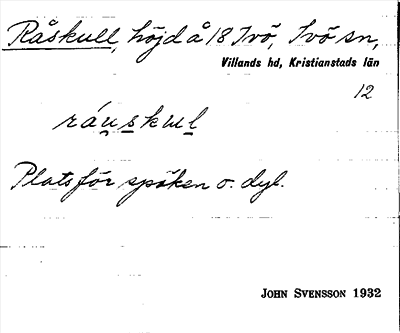 Råskull, höjd å 18 Ivö, Ivö sn,
Villands hd, Kristianstads län
12
ráuskul
Plats för spöken o. dyl.
JOHN SVENSSON 1932